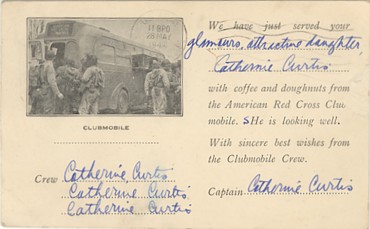 11 BPO
CLUBMOBILE
Crew Catherine Curtis
Catherine Curtis
Catherine Curtis
We have just served your
glamours, attractive daughter
Catherine Curtis
with coffee and doughnuts from
the American Red Cross Clu
mobile. SHe is looking well.
With sincere best wishes from
the Clubmobile Crew.
Captain Catherine Curtis